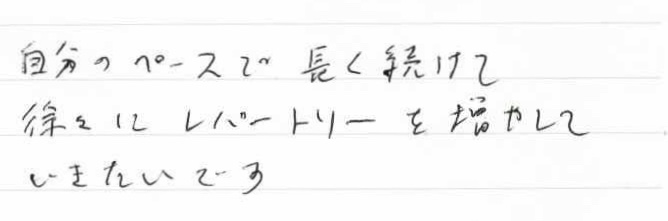 自分のペースで 長く続けて
徐々に レパートリーを増やして
いきたいです